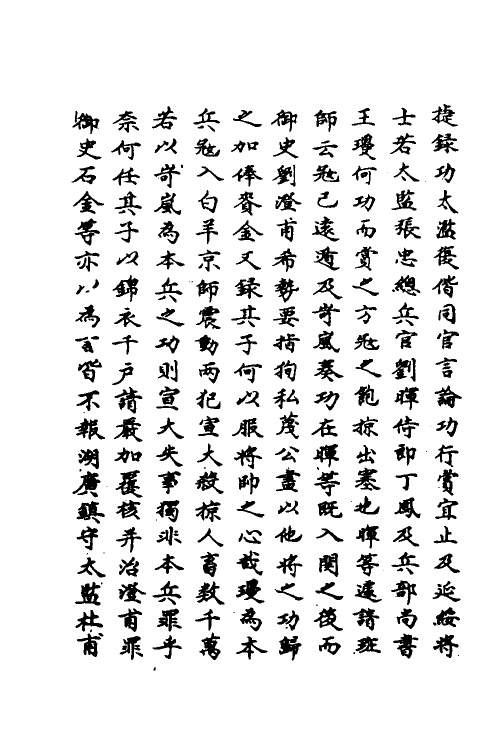 捷録功太濫復偕同官言論功行賞宜止及延綏將
士若太監張忠總兵官劉暉侍郎丁鳳及兵部尚書
王瓊何功而賞之方冦之飽掠出塞也暉等遽請班
師云冦已遠遁及岢嵐奏功在暉等既入関之後而
御史劉澄甫希勢要指狥私蔑公盡以他將之功歸
之加俸賚金又録其子何以服將帥之心哉瓊為本
兵冦入白羊京師震動兩犯宣大殺掠人畜数千萬
若以岢嵐為本兵之功則宣大失事獨非本兵罪乎
奈何任其子以錦衣千戸請嚴加覆核并治澄甫罪
御史石金等亦以為言皆不報湖廣鎮守太監杜甫